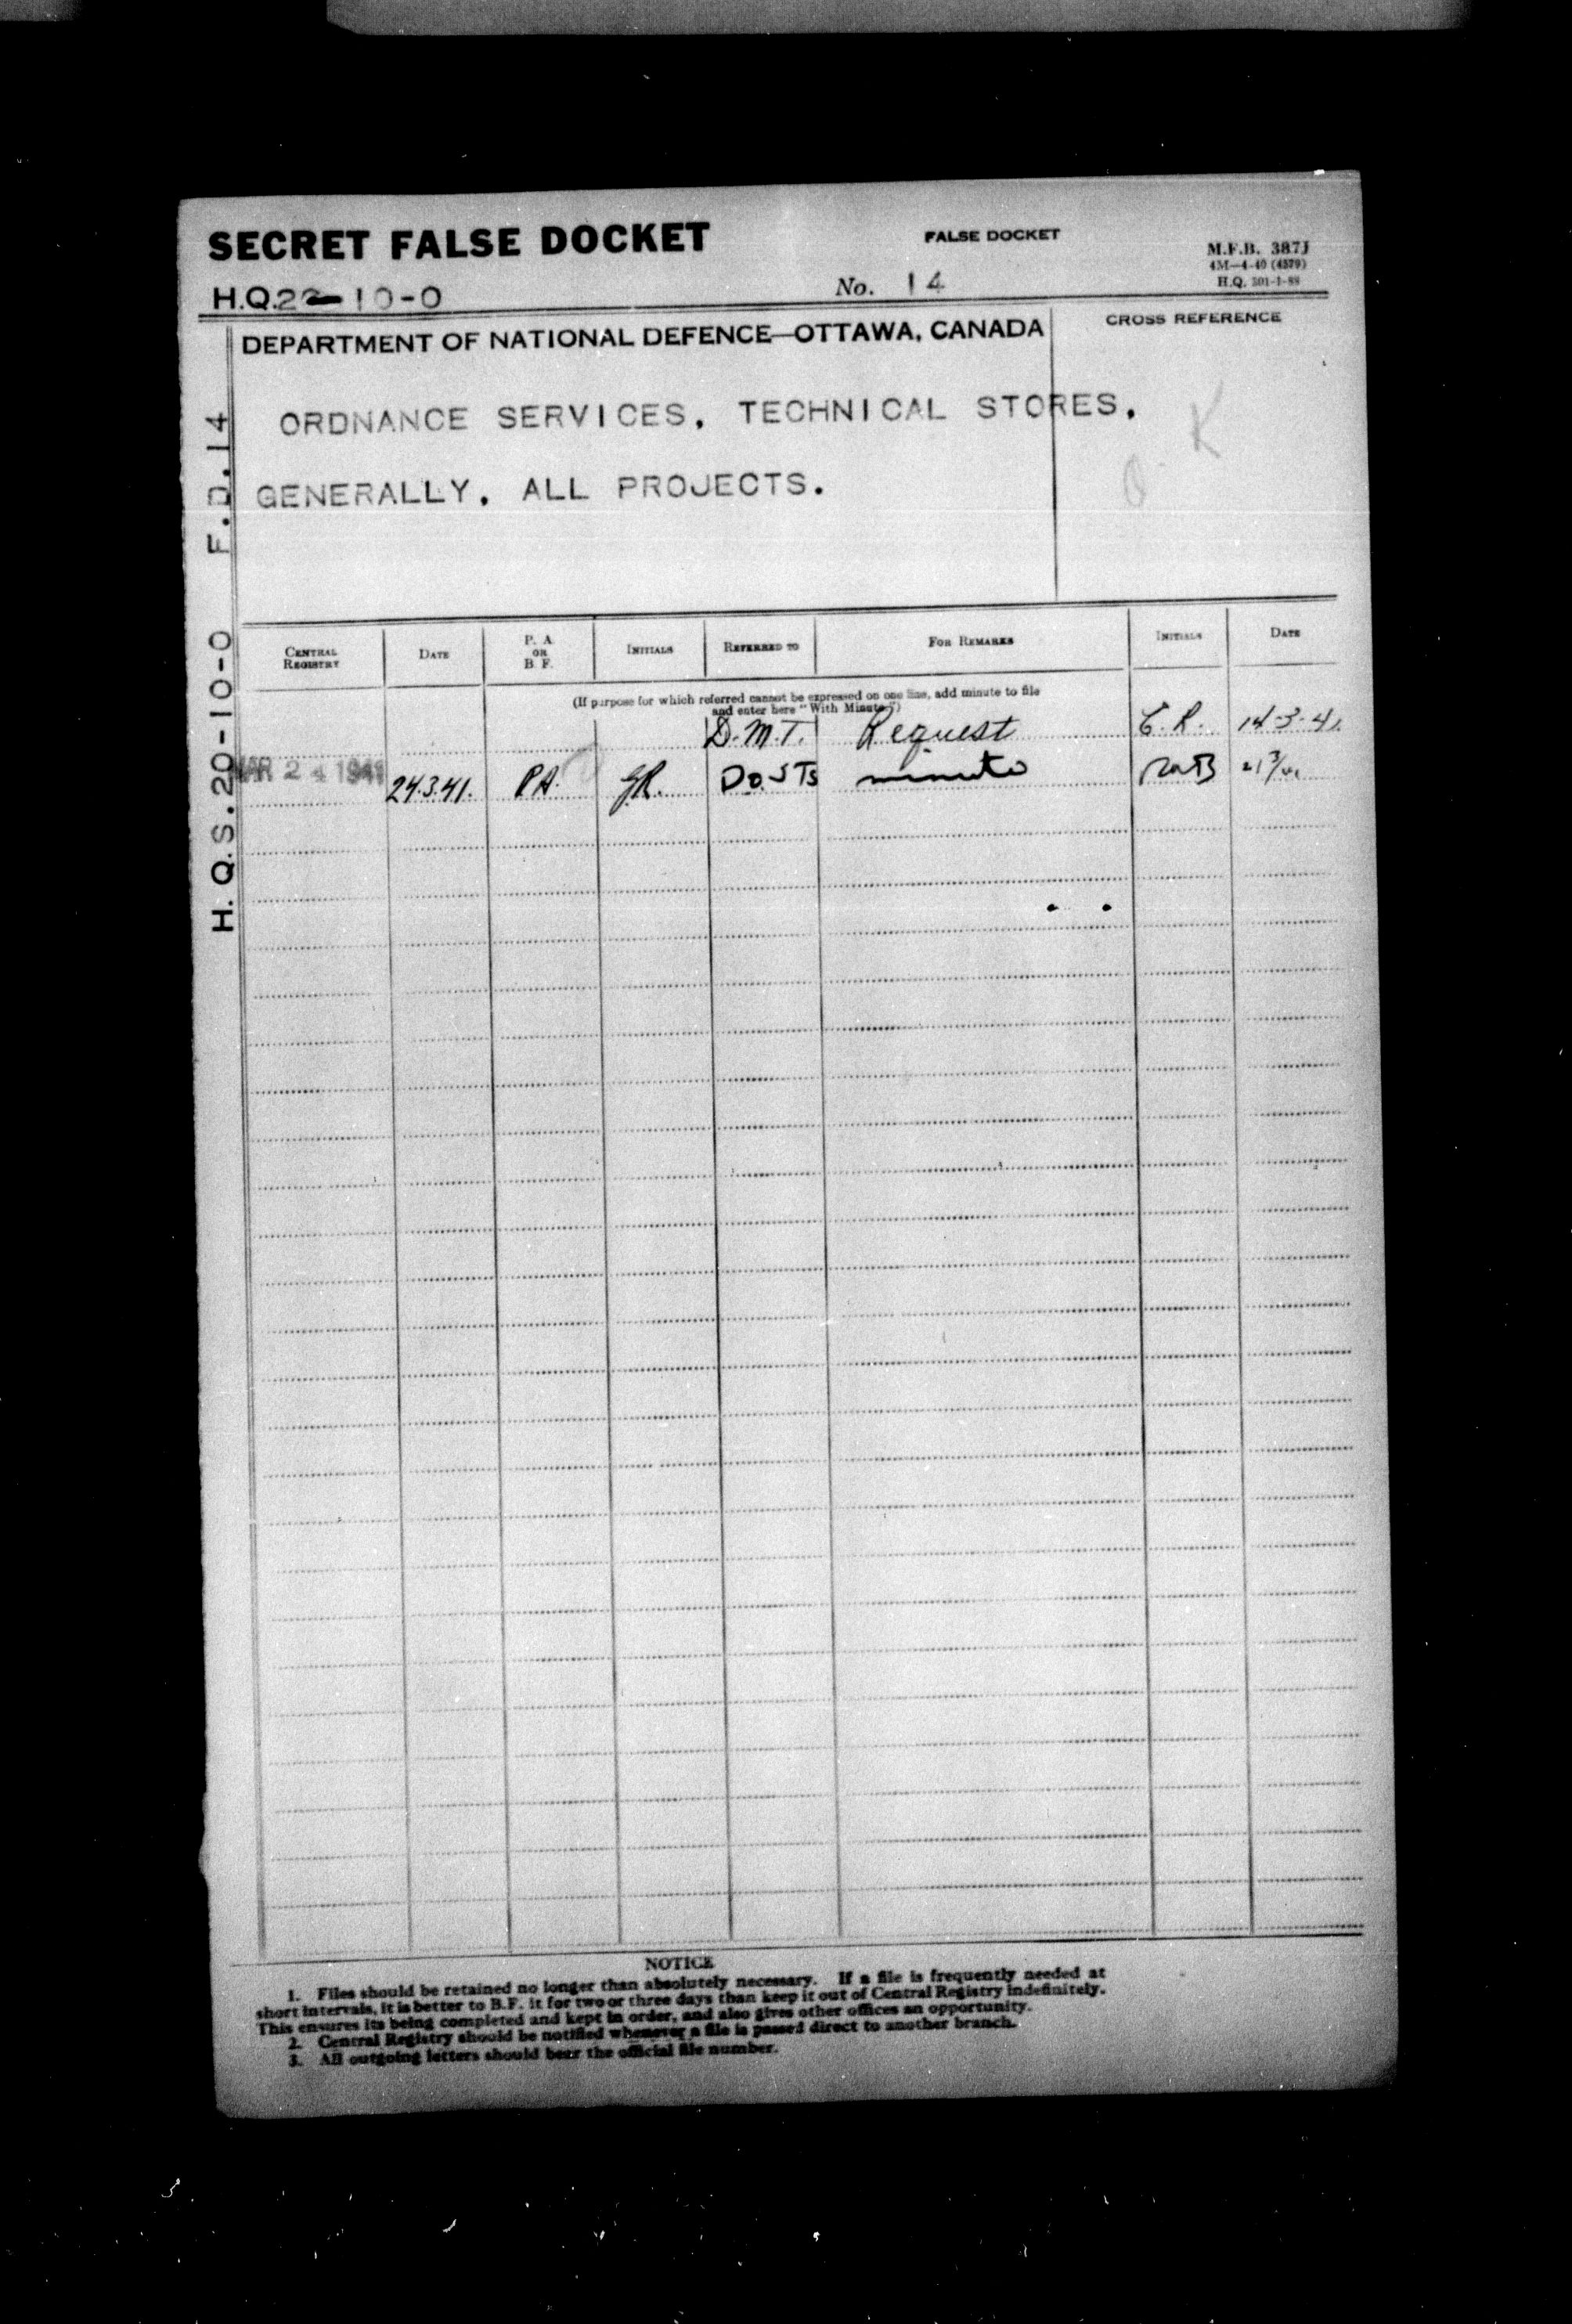 SECRET FALSE DOCKET
FALSE DOCKET
M.F.B. 387J
4M—4-40 (4579)
H.Q. 301-1-88
H.Q. 20-10-0
No. 14
DEPARTMENT OF NATIONAL DEFENCE—OTTAWA, CANADA
CROSS REFERENCE
ORDNANCE SERVICES, TECHNICAL STORES,
GENERALLY, ALL PROJECTS.
O. K
H.Q.S. 20-10-0 F.D. 14
CENTRAL REGISTRY
DATE
P. A. OR B. F.
INITIALS
REFERRED TO
FOR REMARKS
INITIALS
DATE
(If purpose for which referred cannot be expressed on one line, add minute to file
and enter here "With Minute")
D.M.T. Request C.R. 14-3-41.
MAR 24 1941 24.3.41. P.A. GR. D.O.S Ts minute
NOTICE
1. Files should be retained no longer than absolutely necessary. If a file is frequently needed at
short intervals, it is better to B.F. it for two or three days than keep it out of Central Registry indefinitely.
This ensures its being completed and kept in order, and also gives other offices an opportunity.
2. Central Registry should be notified whenever a file is passed direct to another branch.
3. All outgoing letters should bear the official file number.